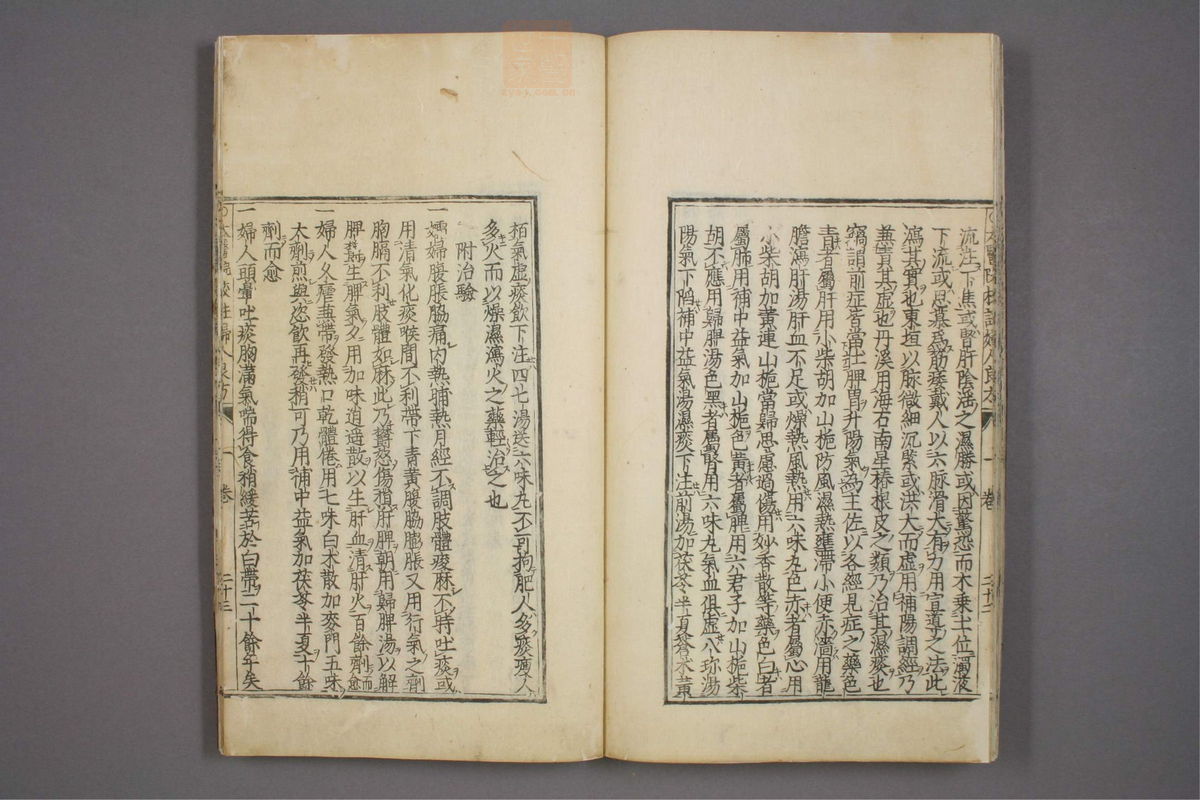 流注下焦或腎肝陰淫之濕勝或因驚恐而木乗土位濁液
下流或思慕爲筋痿戴人以六脉滑大有力用宣導之法此
瀉其實也東垣以脉微細沉緊或洪大而虚用補陽調經乃
兼責其虚也丹溪用海石南星椿根皮之類乃治其濕痰也
竊謂前症皆當壯脾胃升陽氣爲主佐以各經見症之藥色
青者屬肝用小柴胡加山梔防風濕熱壅滯小便赤澁用龍
膽瀉肝湯肝血不足或燥熱風熱用六味丸色赤者屬心用
小柴胡加黄連山梔當歸思慮過傷用妙香散等藥色白者
屬肺用補中益氣加山梔色黄者屬脾用六君子加山梔柴
胡不應用歸脾湯色黑者屬腎用六味丸氣血俱虚八珎湯
陽氣下陷補中益氣湯濕痰下注前湯加茯苓半夏蒼术黄
栢氣虚痰飲下注四七湯送六味丸不可拘肥人多痰瘦人
多火而以燥濕瀉火之藥輕治之也
附治驗
一孀婦腹脹脇痛内熱晡熱月經不調肢體痠麻不時吐痰或
用清氣化痰喉間不利帶下青黄腹脇膨脹又用行氣之劑
胸膈不利肢體如麻此乃鬱怒傷損肝脾朝用歸脾湯以解
脾鬱生脾氣夕用加味逍遥散以生肝血清肝火百餘劑而愈
一婦人久瘧兼帶發熱口乾體倦用七味白术散加麥門五味
大劑煎與恣飲再發稍可乃用補中益氣加茯苓半夏十餘
劑而愈
一婦人頭暈吐痰胸滿氣喘得食稍緩苦於白帶二十餘年矣
太醫院校註婦人良方
一卷
二十二
二十三